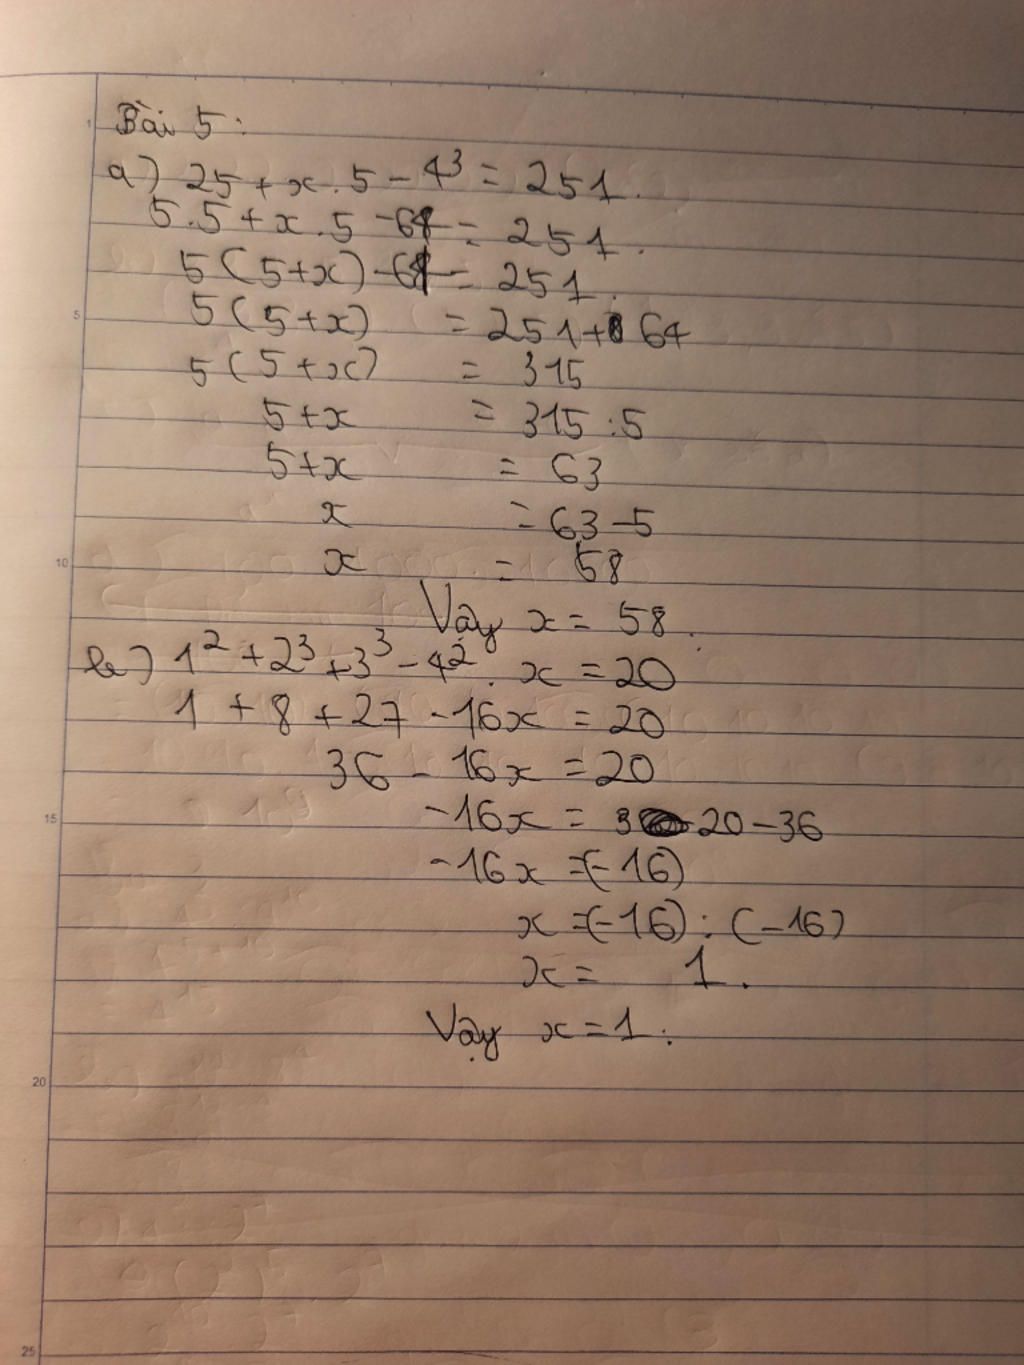 Bài 5:
a) 25 + x . 5 - 4³ = 251.
5.5 + x . 5 - 64 = 251.
5 (5+x) - 64 = 251.
5 (5+x) = 251 + 64
5 (5+x) = 315
5+x = 315 : 5
5+x = 63
x = 63 - 5
x = 58
Vậy x = 58.
b) 1² + 2³ + 3³ - 4² . x = 20
1 + 8 + 27 - 16x = 20
36 - 16x = 20
-16x = 20 - 36
-16x = (-16)
x = (-16) : (-16)
x = 1.
Vậy x = 1.
5
10
15
20
25